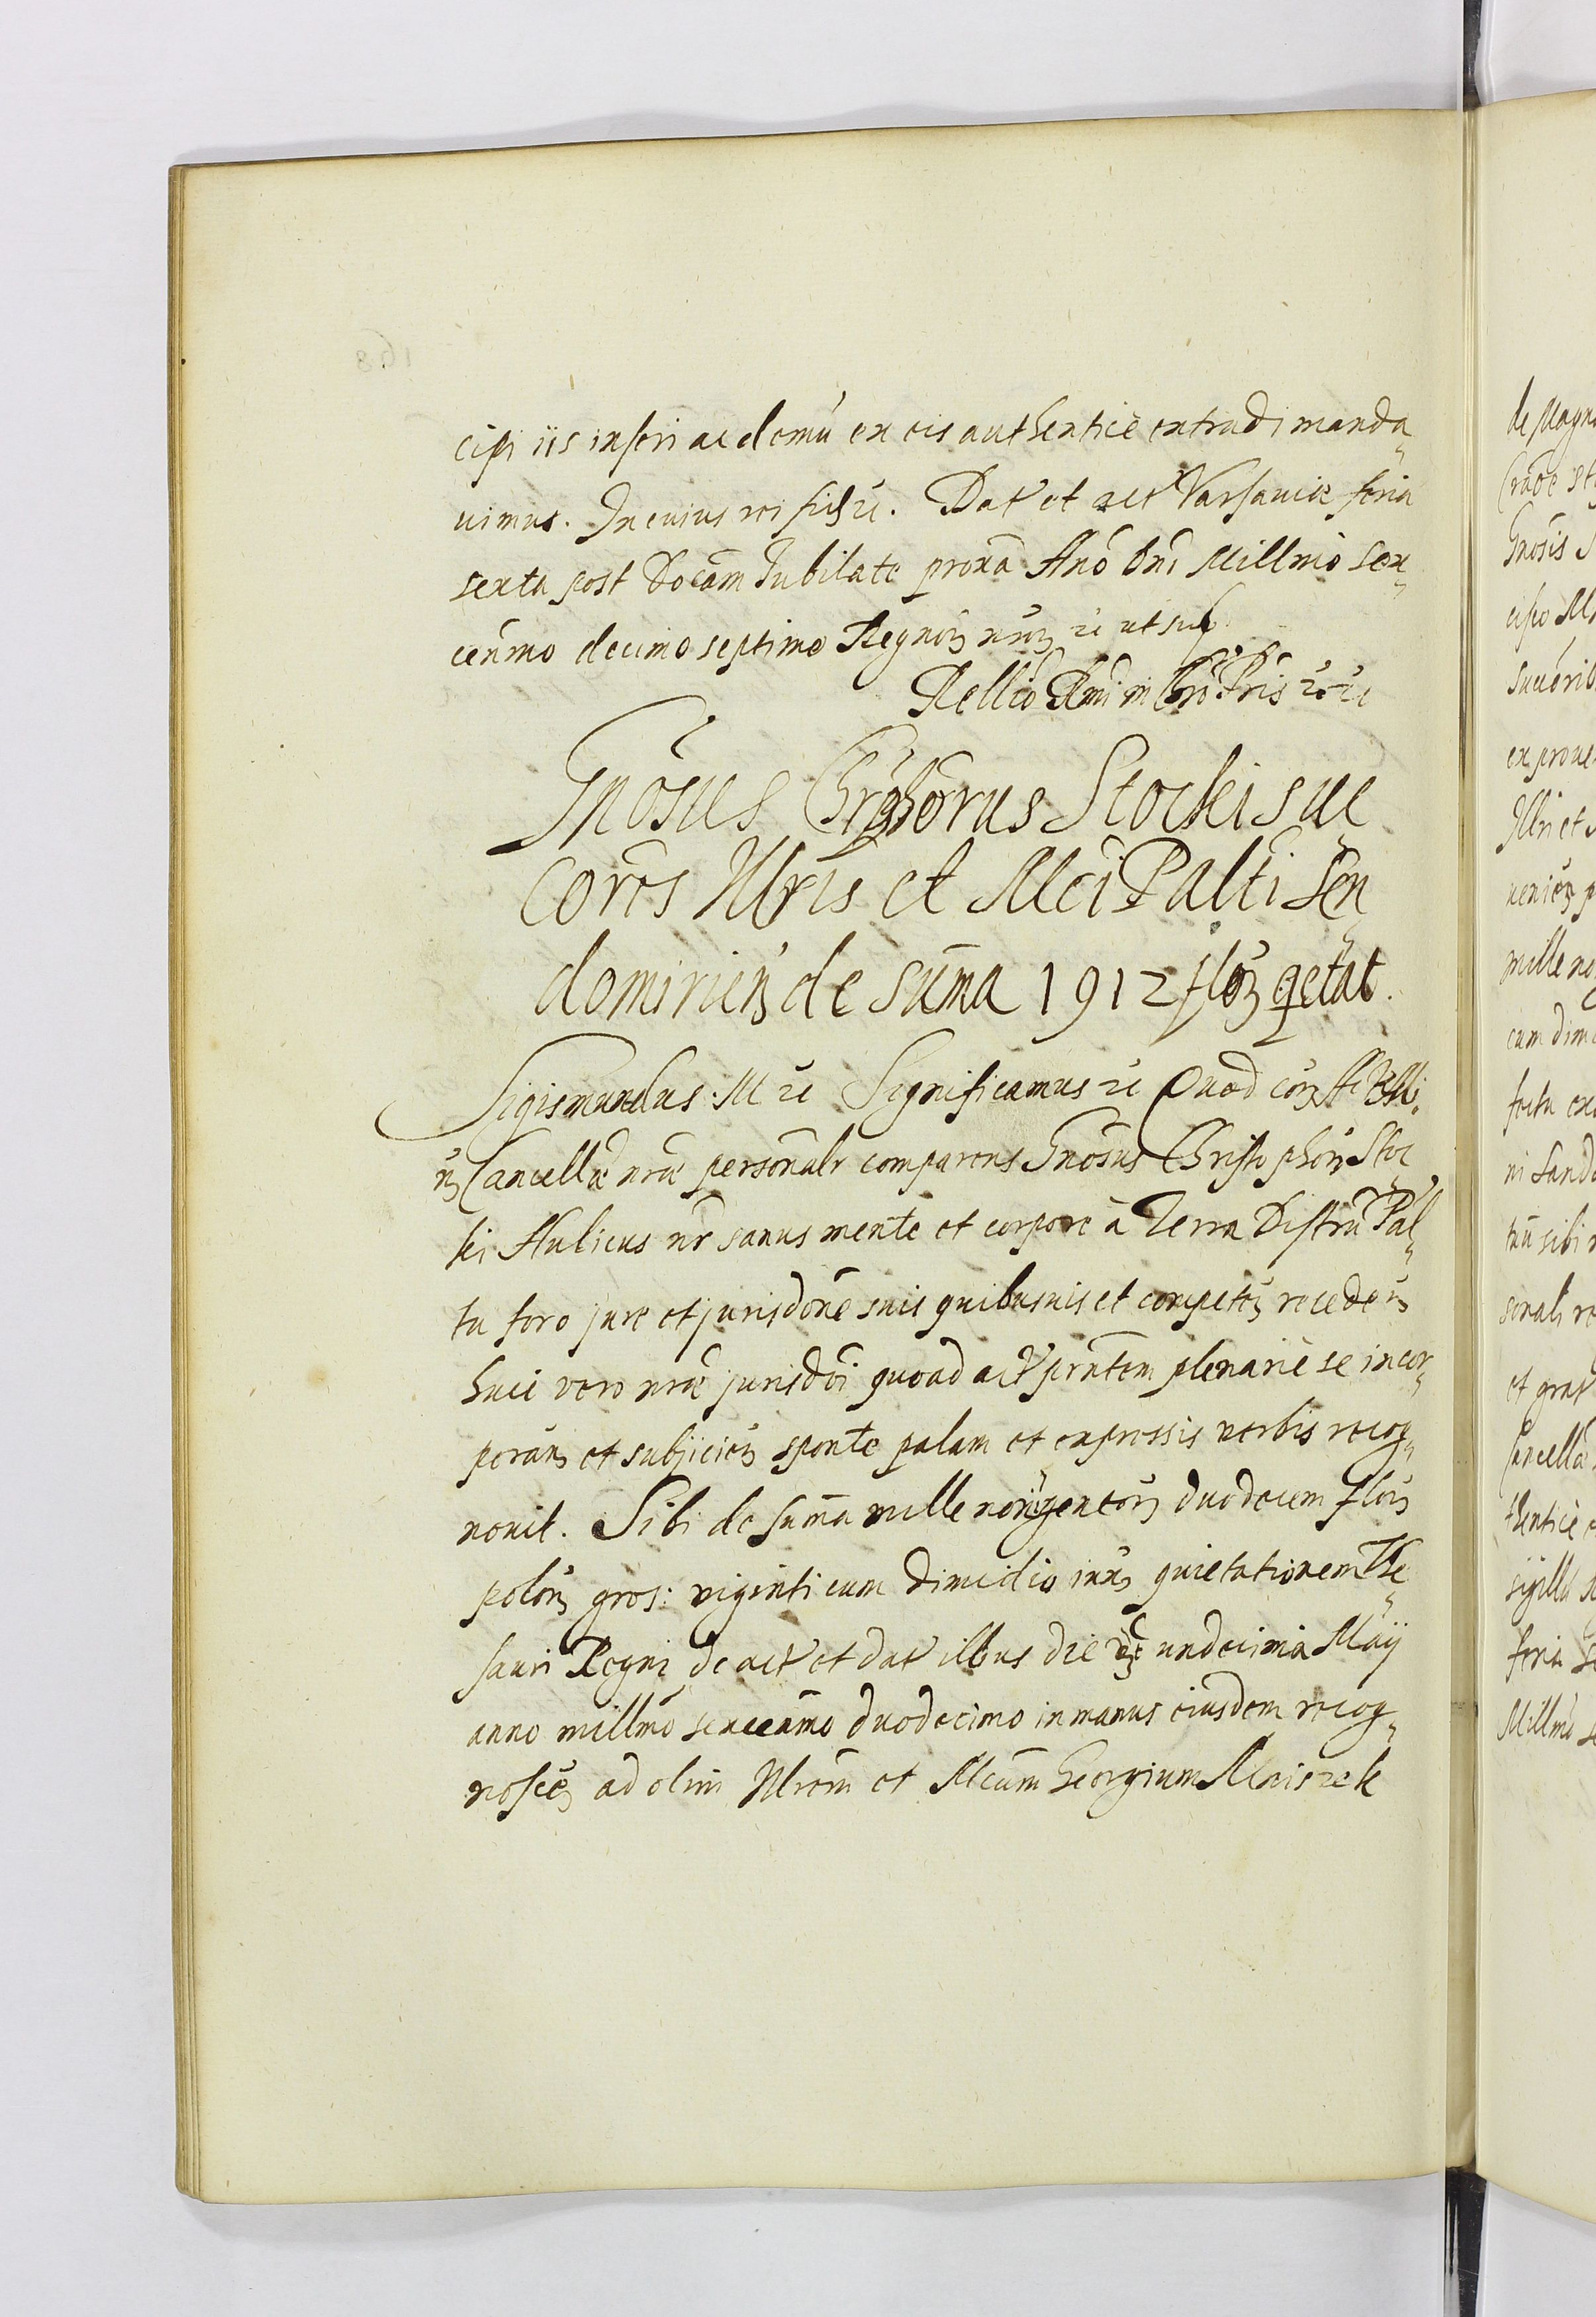 cipi iis inseri ac demū ex eis authenticè extradi manda„
uimus. In cuius rei fid ꝛc. Dat et act Varsauiæ feria
sexta post Docām Iubilate proxā Anō Dni Millmō sex„
cenmo decimo septimo Regnoꝝ nroꝝ ꝛc ut sup
Rellio Rmi in Chro Pris ꝛc ꝛc
Gnōsus Chrphōrus Stocki suc„
corēs Illris et Mci Palti Sen„
domirien de sum̄a 1912 floꝝ qetat.
Sigismundus: M ꝛc Significamus ꝛc Quod coꝝ Actis Mi„
ꝝ Cancellæ nræ personalr comparens Gnosus Christophorꝰ Stoc„
ki Aulicus nr sanus mente et corpore à Terra Distru Pal„
tu foro jure et jurisdone suis quibusuis et competen recedeñ
huic vero nræ jurisdoi quoad act prntem plenariè se incor„
porañ et subjicień sponte palam et expressis verbis recog„
nouit. Sibi de sum̄a mille nongentoꝝ duodecim floꝝ
poloñ gros: viginti cum dimidio iuxꝭ quietationem The„
sauri Regni de act et dat illius die undecima Maÿ
anno millmō sexcenmo duodecimo in manus eiusdem recog„
noscē ad olim Illrem et Mcum Georgium Mniszek
168
de Magn
Gnosis S
cipo Mn
succorib
ex proue
Illri et
mille no
cum dimi
ni Sando
tu sibi
sonalr re
et grat
Cancellæ
thenticè
sigillū
feria
Millmō se